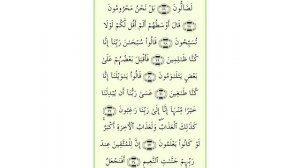 لَضَآلُّونَ بَلْ نَحْنُ مَحْرُومُونَ
قَالَ أَوْسَطُهُمْ أَلَمْ أَقُل لَّكُمْ لَوْلَا
تُسَبِّحُونَ قَالُوا۟ سُبْحَٰنَ رَبِّنَآ إِنَّا
كُنَّا ظَٰلِمِينَ فَأَقْبَلَ بَعْضُهُمْ عَلَىٰ
بَعْضٍ يَتَلَٰوَمُونَ قَالُوا۟ يَٰوَيْلَنَآ إِنَّا
كُنَّا طَٰغِينَ عَسَىٰ رَبُّنَآ أَن يُبْدِلَنَا
خَيْرًا مِّنْهَآ إِنَّآ إِلَىٰ رَبِّنَا رَٰغِبُونَ
كَذَٰلِكَ ٱلْعَذَابُ ۖ وَلَعَذَابُ ٱلْءَاخِرَةِ أَكْبَرُ
لَوْ كَانُوا۟ يَعْلَمُونَ إِنَّ لِلْمُتَّقِينَ عِندَ
رَبِّهِمْ جَنَّٰتِ ٱلنَّعِيمِ أَفَنَجْعَلُ